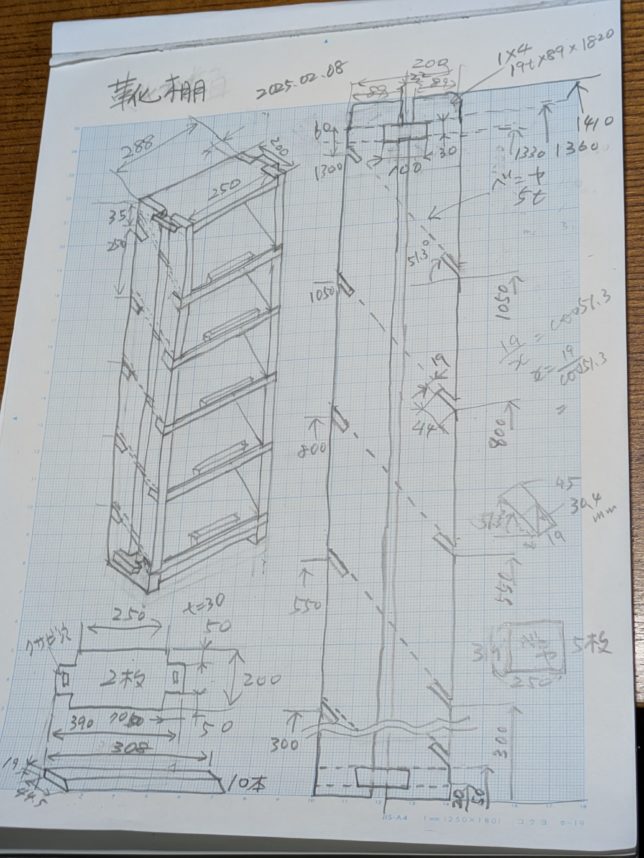 靴棚
2025.02.08
1×4
19t×89×1820
200
22
89
89
60
30
100
1300
1330
1360
1410
ベニヤ
5t
51.3°
288
200
250
35
250
1050
1050
19/x = cos51.3
x = 19/cos51.3
=
19
44
800
800
45
30.4
mm
51.3
x
19
550
550
ベニヤ
5枚
250
300
300
30
50
クサビ穴
250
t=30
50
2枚
200
50
390
308
19
44.5
10本